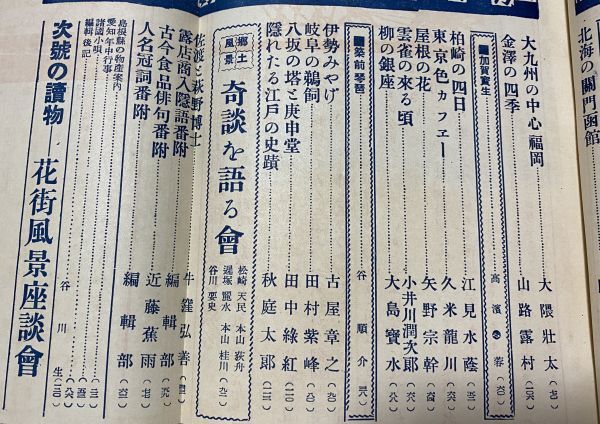 北海の關門函館
大九州の中心福岡 大隈壯太
金澤の四季 山路露村
加賀寶生 高濱
柏崎の四日 江見水蔭
東京色カフエー 久米龍川
屋根の花 矢野宗幹
雲雀の來る頃 小井川潤次郎
柳の銀座 大島寶水
筑前琵琶 谷順介
伊勢みやげ 古屋章之
岐阜の鵜飼 田村紫峰
八坂の塔と庚申堂 田中綠紅
隱れたる江戸の史蹟 秋庭太郎
鄕土風景 奇談を語る會 松崎天民 本山荻舟 遲塚麗水 本山桂川 谷川要史
佐渡と萩野博士 牛窪弘善
露店商人隱語番附 編輯部
古今食品俳句番附 近藤蕉雨
人名冠詞番附 編輯部
島根縣の物産案內
愛知年中行事
諸國小唄
編輯後記 谷川生
次號の讀物―花街風景座談會